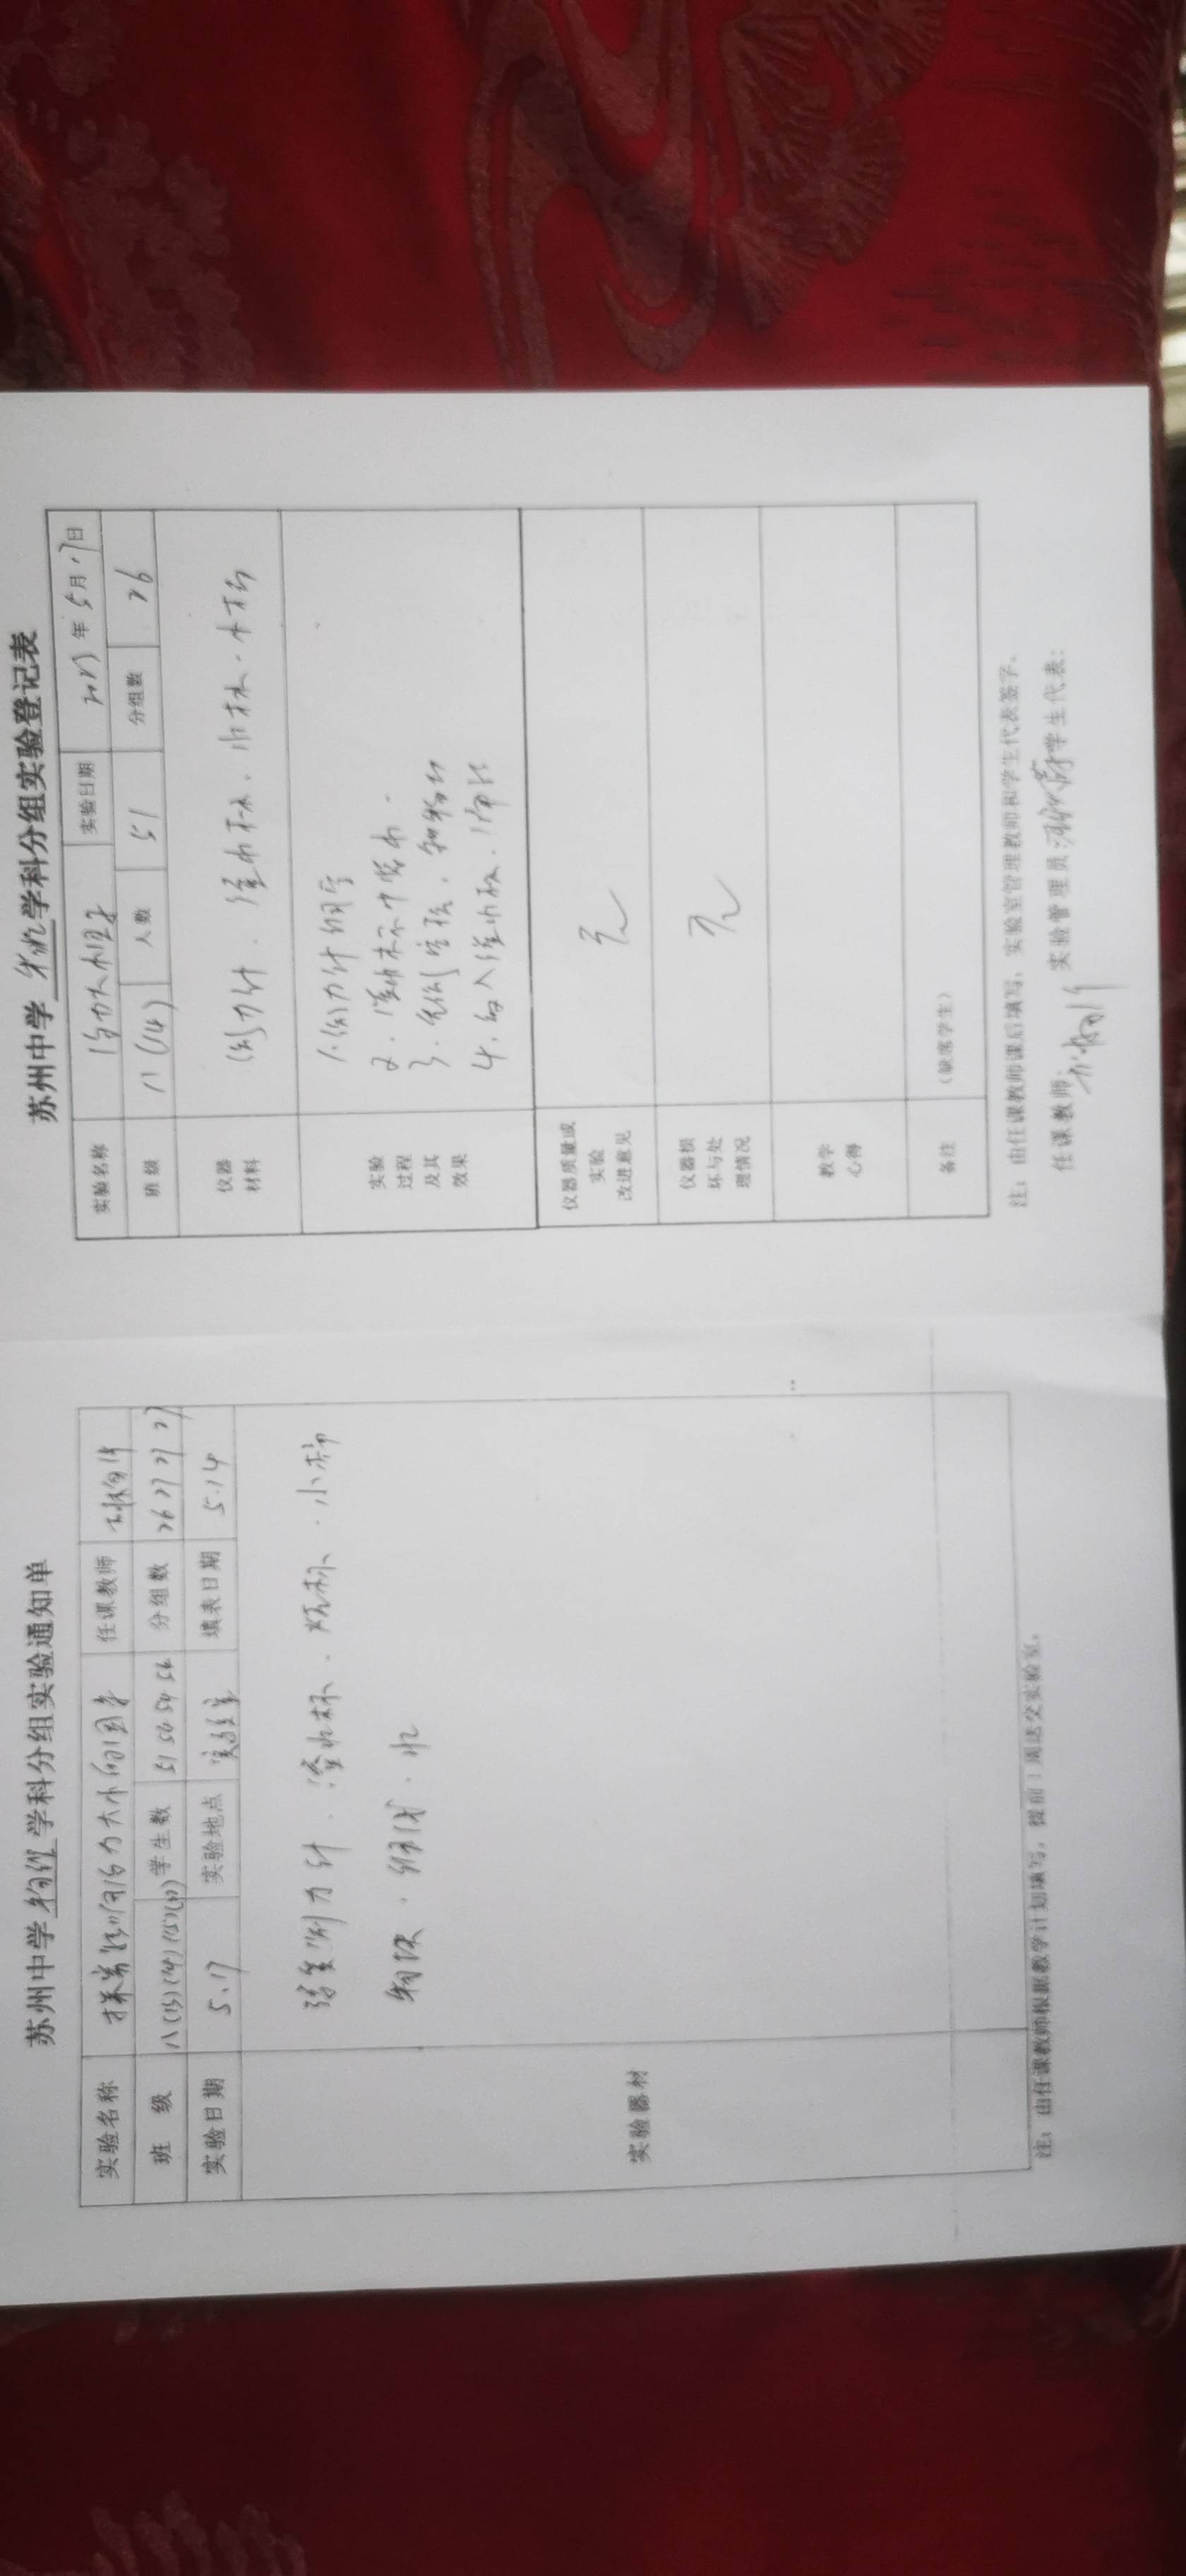 苏州中学 物理 学科分组实验通知单
实验名称 探究影响浮力大小的因素 任课教师
班 级 八(13)(14)(15) 学生数 51 54 54 分组数 26 27 27 27
实验日期 5.17 实验地点 实验室 填表日期 5.14
实验器材
弹簧测力计、溢水杯、烧杯、小桶
物块、细线、水
注：由任课教师根据教学计划填写，提前1周送交实验室。
苏州中学 物理 学科分组实验登记表
实验名称 浮力大小因素 实验日期 年 5月17日
班 级 八(14) 人数 51 分组数 26
仪器材料
测力计、溢水杯、小
实验过程及其效果
1.测力计调零
2.溢水杯中装水
3.先测空瓶、
4.
仪器质量或实验改进意见 无
仪器损坏与处理情况 无
教学心得
备注 （缺席学生）
注：由任课教师课后填写，实验室管理教师和学生代表签字。
任课教师： 实验管理员： 学生代表：